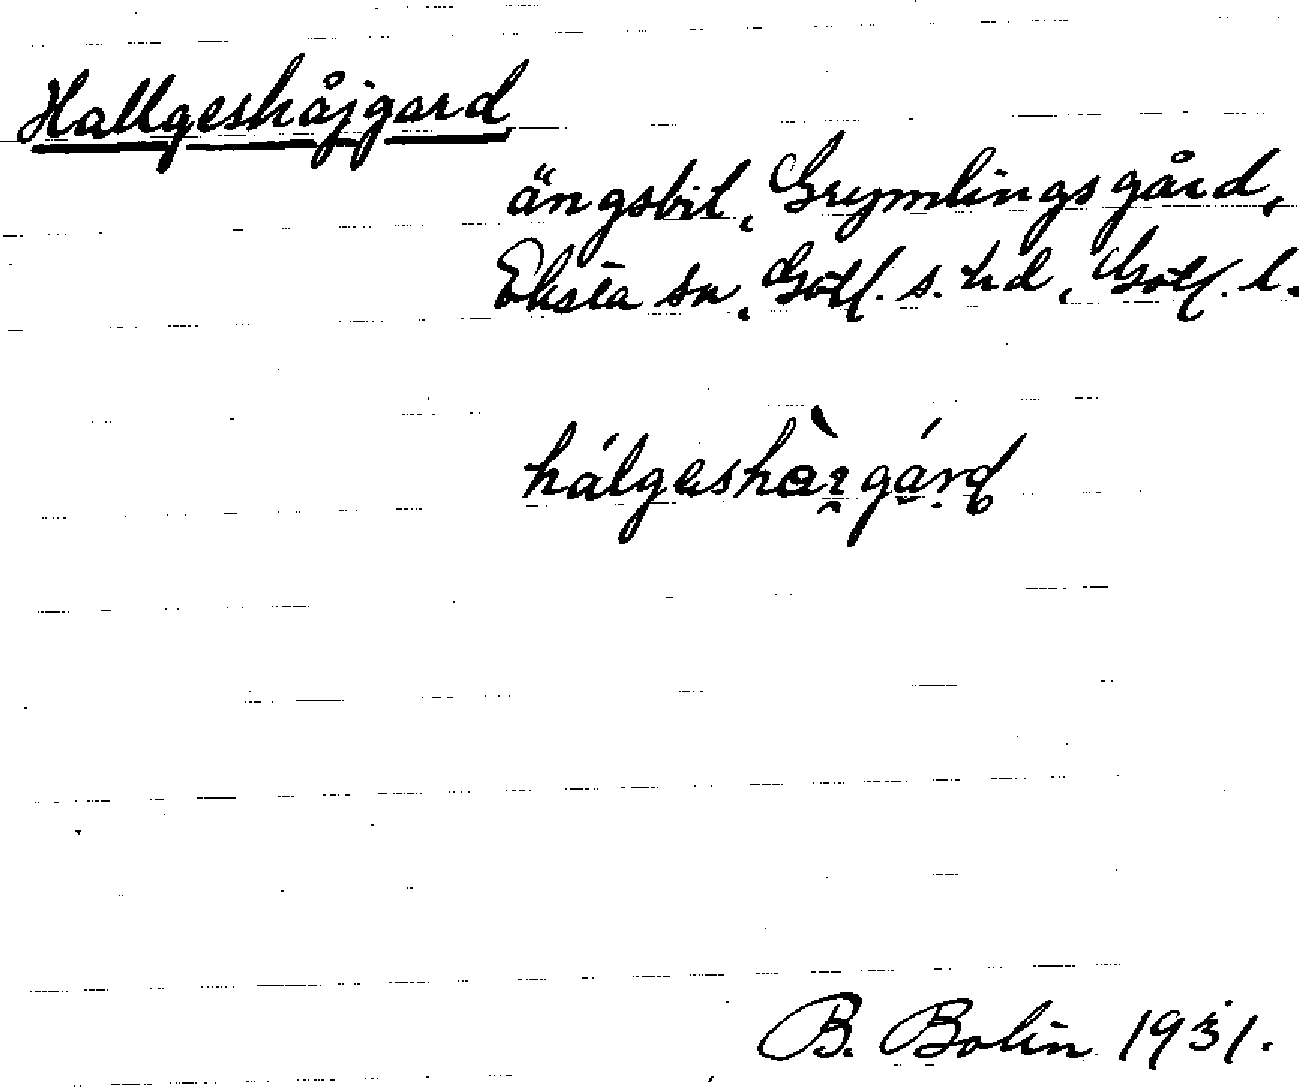 Hallgeshåjgard
ängsbit, Grymlingsgård,
Eksta sn, Gotl. s. hd, Gotl. l.
B. Bolin 1931.